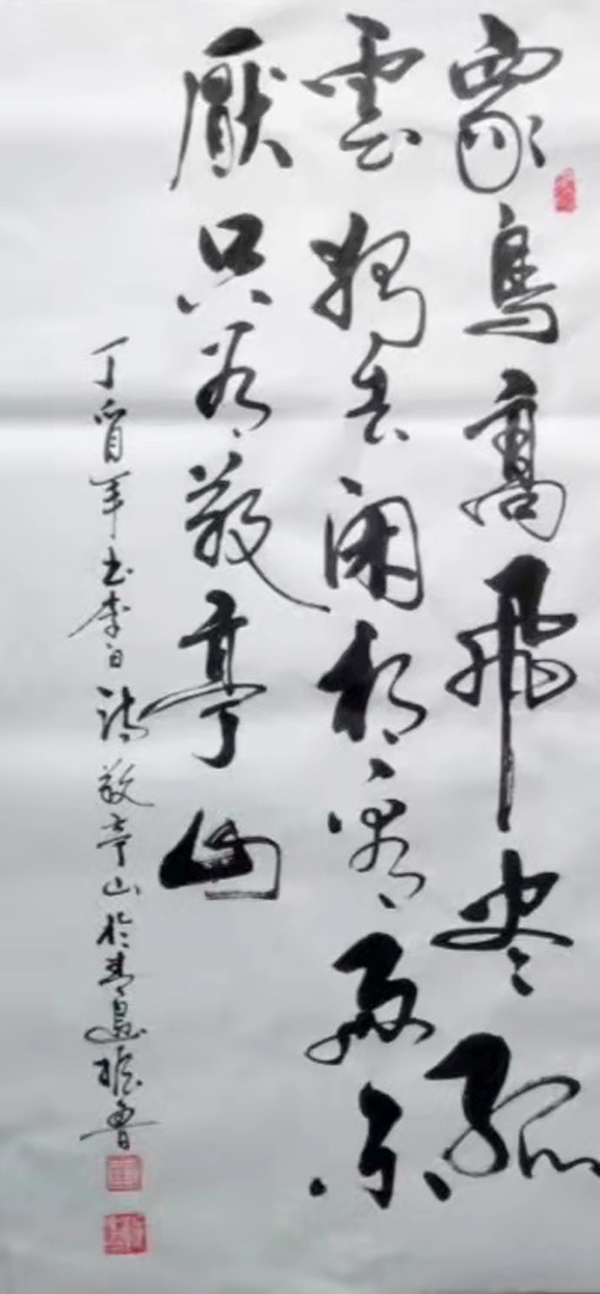 眾鳥高飛尽孤
雲獨去閑相看兩不
厭只有敬亭山
丁酉年書李白詩敬亭山於青島振魯